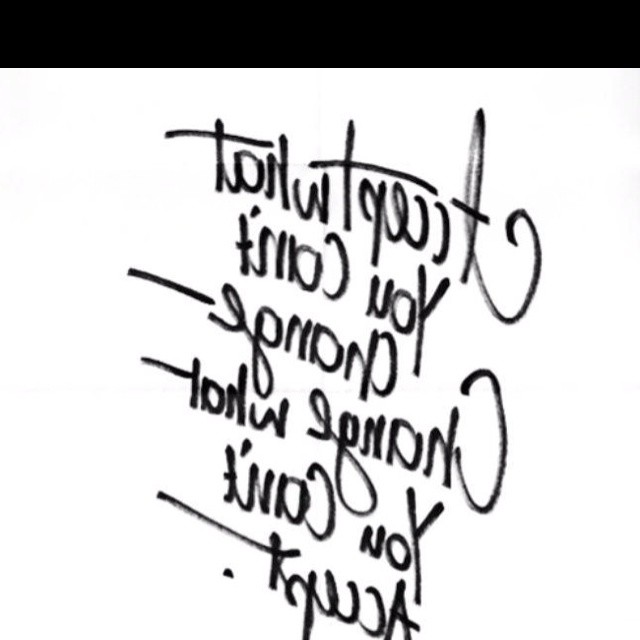 Accept what
You Can't
Change
Change what
You Can't
Accept.